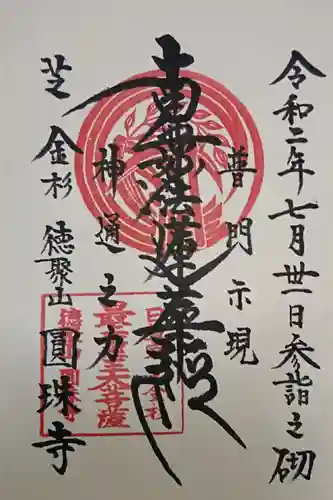 令和二年七月卅一日参詣之砌
普門示現
南無妙法蓮華経
神通之力
芝金杉
徳聚山圓珠寺